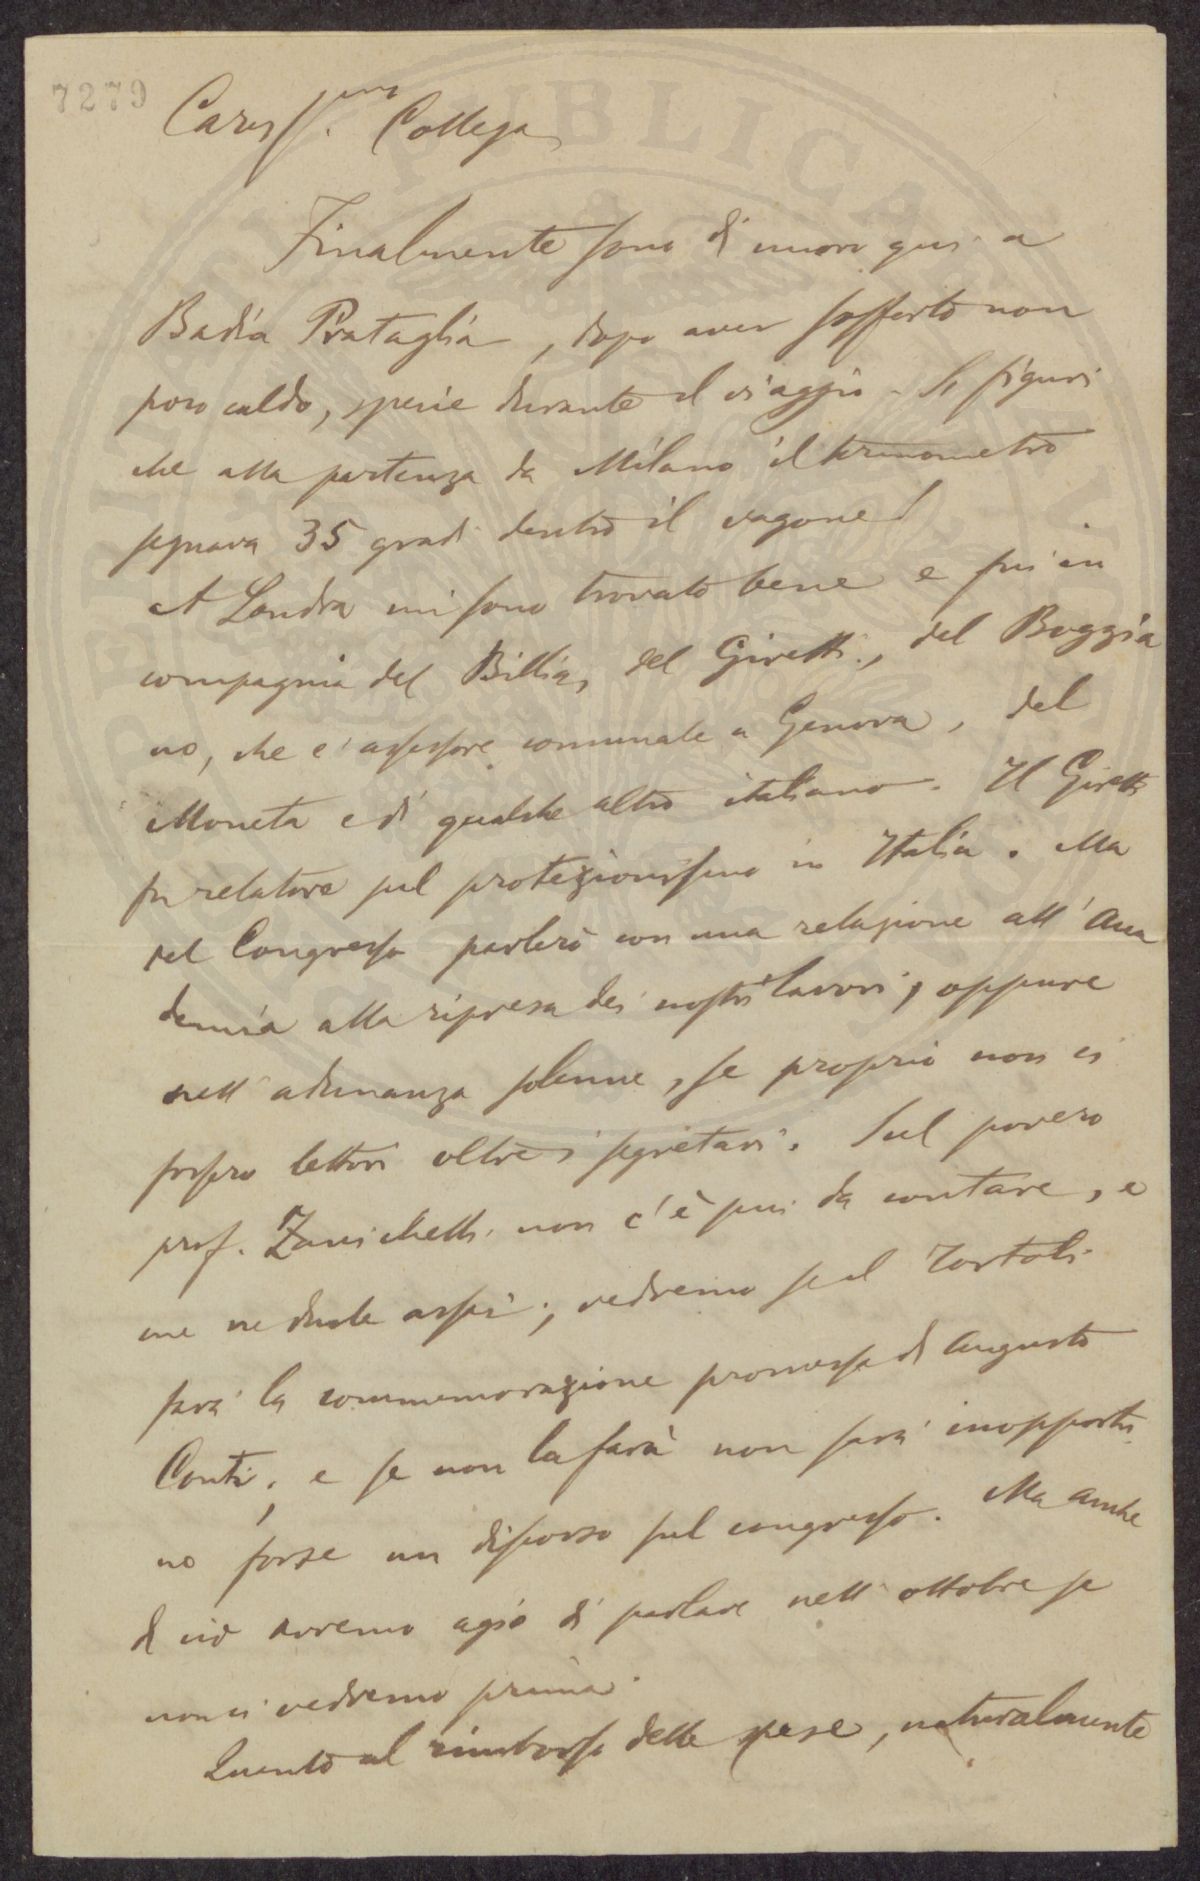 7279
Cariss.mo Collega,
Finalmente sono di nuovo qui a
Badia Prataglia, dopo aver sofferto non
poco caldo, specie durante il viaggio. Si figuri
che alla partenza da Milano il termometro
segnava 35 gradi dentro il vagone!
A Londra mi sono trovato bene e fui in
compagnia del Billia, del Giretti, del Boggia
no, che e' assessore comunale a Genova, del
Moneta e di qualche altro italiano. Il Giretti
fu relatore sul protezionismo in Italia. Ma
del Congresso parlerò con una relazione all' Acca
demia alla ripresa dei nostri lavori, oppure
nell' adunanza solenne, se proprio non ci
fossero lettori oltre i segretari. Sul povero
prof. Zanichelli non c'è piu da contare, e
me ne duole assai; vedremo se il Tortoli
farà la commemorazione promessa di Augusto
Conti; e se non la farà non sarà inopportu
no forse un discorso sul congresso. Ma anche
di ciò avremo agio di parlare nell' ottobre se
non ci vedremo prima.
Quanto al rimborso delle spese, naturalmente